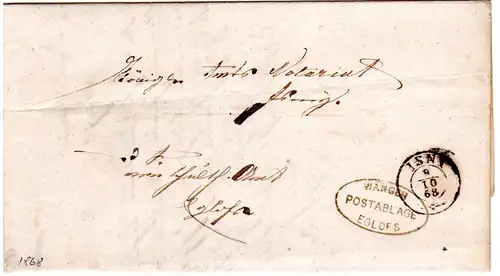 Königl. Amts Notariat
Isny.
Schulth. Amt
Eglofs
ISNY
9
10
68
WANGEN
POSTABLAGE
EGLOFS
1868